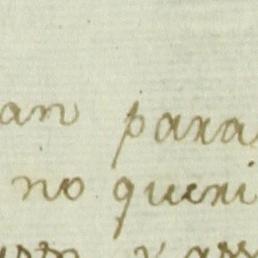 an para
no queri